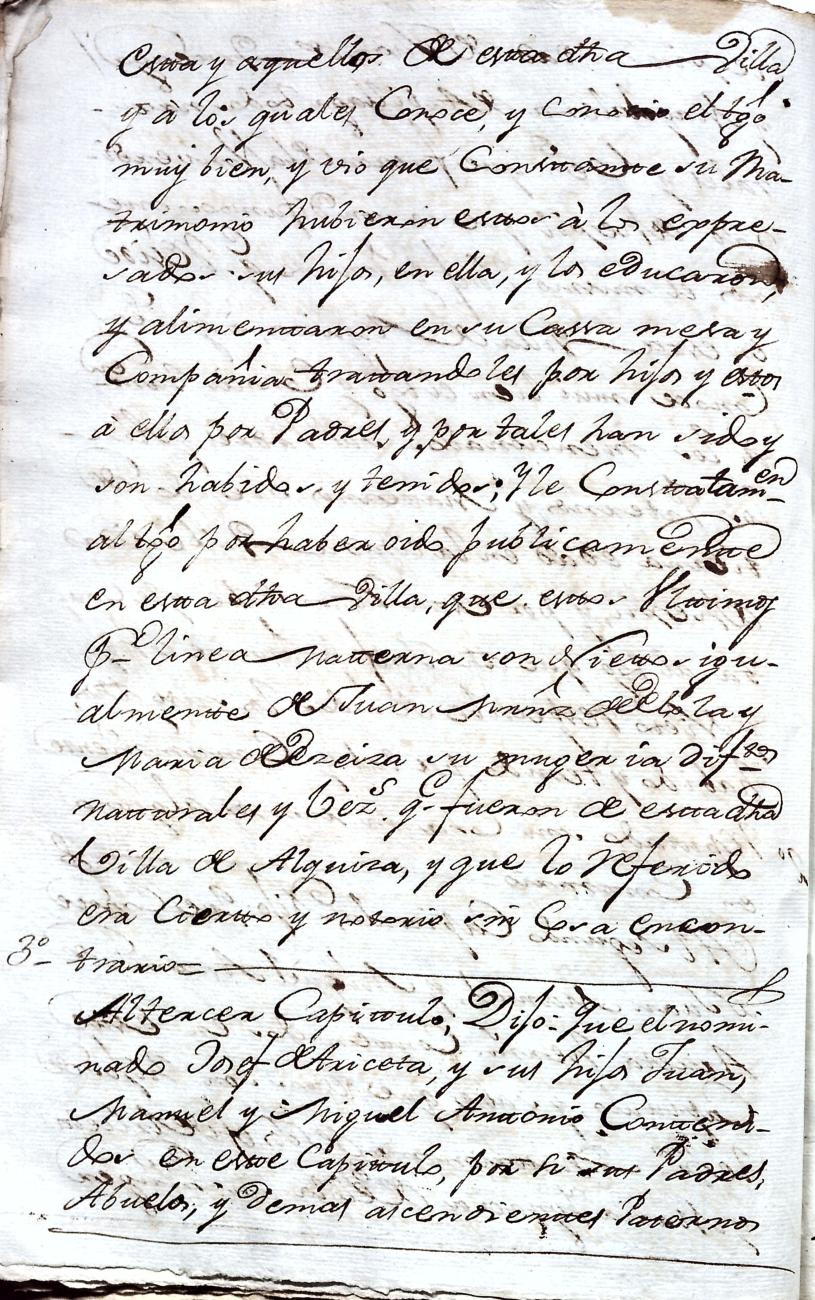 esta y aquellos de esta dha Villa
y à los quales Conoce, y conocio el tgo
muy bien, y vio que Constante su Ma-
trimonio hubieron estos à los expre-
sados sus hijos, en ella, y los educaron,
y alimentaron en su Cassa mesa y
Compañia tratandoles por hijos y estos
à ellos por Padres, y por tales han sido y
son habidos y tenidos; y le Consta tam-en
al tgo por haber oido publicamente
en esta dha Villa, que estos Ultimos
pr linea Materna son Nietos igu-
almente de Juan Munz de
Maria de su muger ia diftos
naturales y Vezs qe fueron de esta dha
Villa de Alquiza, y que lo Referido
era Cierto y notorio sin Cosa encon-
3o trario=
Altercer Capitulo, Dijo: Que el nomi-
nado Josef de Ariceta, y sus hijos Juan,
Manuel y Miguel Antonio Conteni-
dos en este Capitulo, por si sus Padres,
Abuelos, y demas ascendientes Paternos